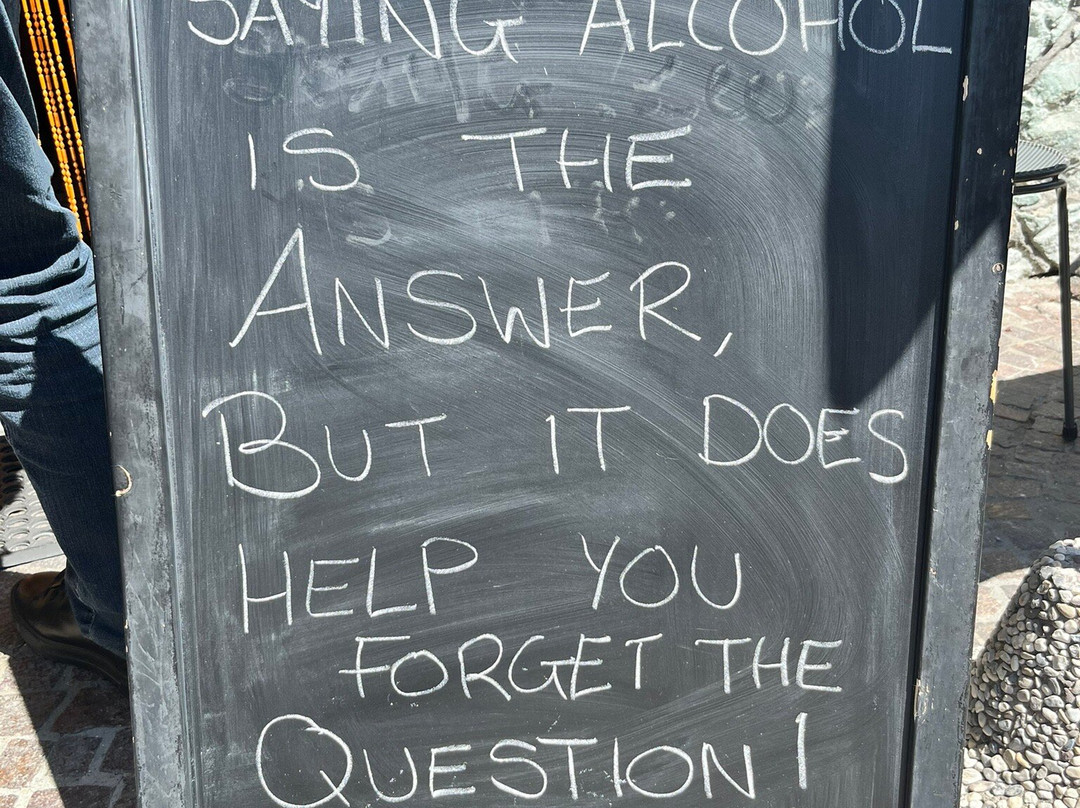 SAYING ALCOHOL
IS THE
ANSWER,
BUT IT DOES
HELP YOU
FORGET THE
QUESTION!